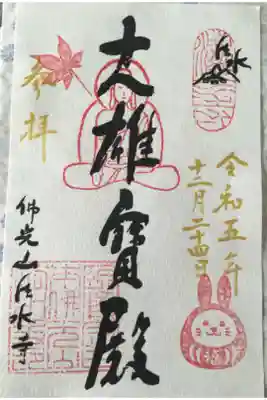 法水
奉拝
大雄寳殿
令和五年
十二月二十四日
佛光山法水寺